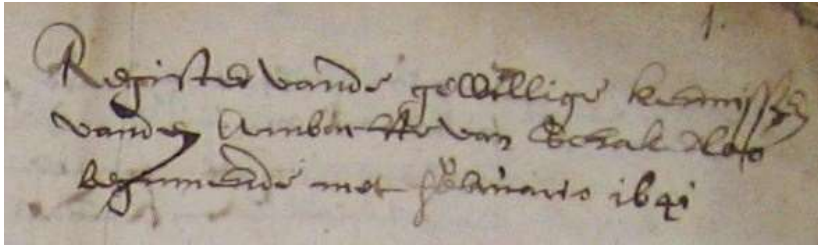 1.
Register vande gewillige kennissen
vanden Ambachte van Schakerloo
beginnende met februario 1641